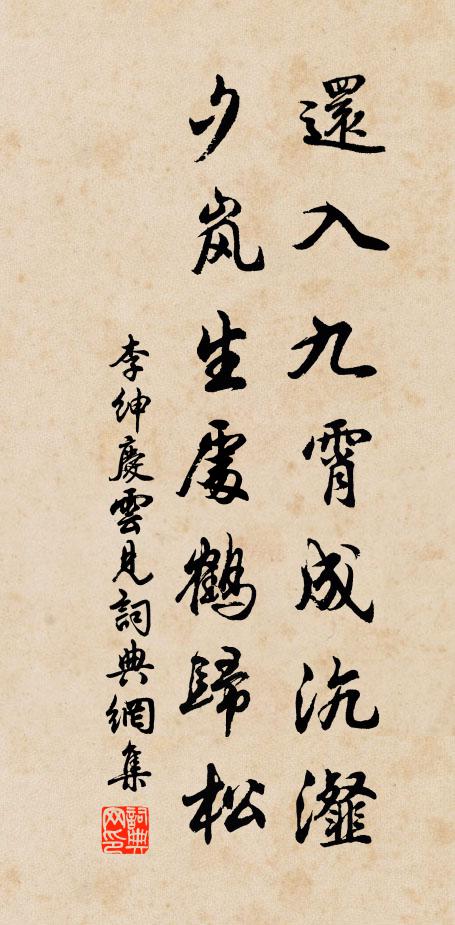 還入九霄成沆瀣
夕岚生處鶴歸松
李紳慶雲見詞典網集
詞典网印